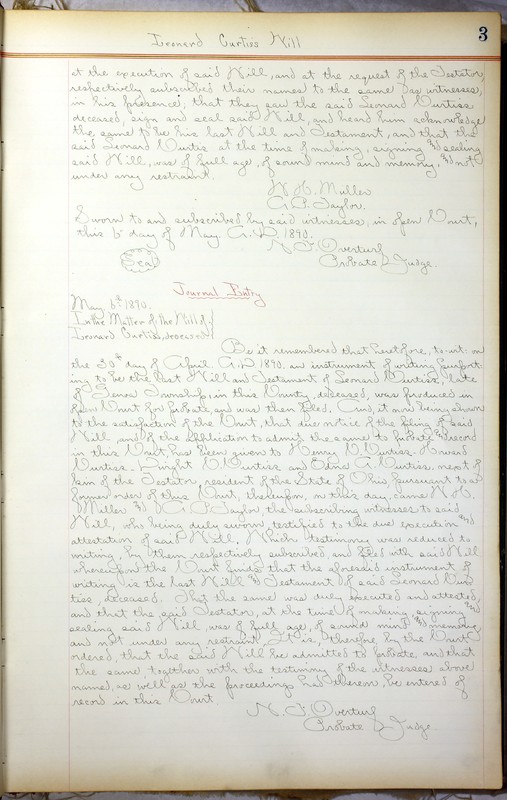 3
Leonard Curtiss Will
at the execution of said Will, and at the request of the Testator,
respectively subscribed their names to the same as witnesses,
in his presence; that they saw the said Leonard Curtiss
deceased, sign and seal said Will, and heard him acknowledge
the same to be his last Will and Testament, and that the
said Leonard Curtiss at the time of making, signing and sealing
said Will, was of full age, of sound mind and memory, and not
under any restraint.
W. H. Miller
A. P. Taylor.
Sworn to and subscribed by said witnesses, in open Court,
this 6th day of May. A.D. 1890.
N. J. Overturf
Probate Judge.
Seal
Journal Entry
May 6th 1890.
In the Matter of the Will of
Leonard Curtiss, deceased
Be it remembered that heretofore, to-wit: on
the 30th day of April. A.D. 1890. an instrument of writing purport-
ing to be the last Will and Testament of Leonard Curtiss, late
of Genoa Township, in this County, deceased, was produced in
open Court for probate, and was then filed. And, it now being shown
to the satisfaction of the Court, that due notice of the filing of said
Will, and of the application to admit the same to probate and record
in this Court, has been given to Henry Curtiss. Howard
Curtiss - Dwight Curtiss and Edna A. Curtiss, next of
kin of the Testator, resident of the State of Ohio, pursuant to a
former order of this Court, thereupon, on this day, came W. H.
Miller and A. P. Taylor, the subscribing witnesses to said
Will, who being duly sworn, testified to the due execution and
attestation of said Will, Which testimony was reduced to
writing, by them respectively subscribed, and filed with said Will
whereupon the Court finds that the aforesaid instrument of
writing is the last Will and Testament of said Leonard Cur-
tiss, deceased. That the same was duly executed and attested,
and that the said Testator, at the time of making, signing and
sealing said Will, was of full age, of sound mind and memory
and not under any restraint. It is, therefore, by the Court
ordered, that the said Will be admitted to probate, and that
the same, together with the testimony of the witnesses above
named, as well as the proceedings had therein, be entered of
record in this Court.
N. J. Overturf
Probate Judge.